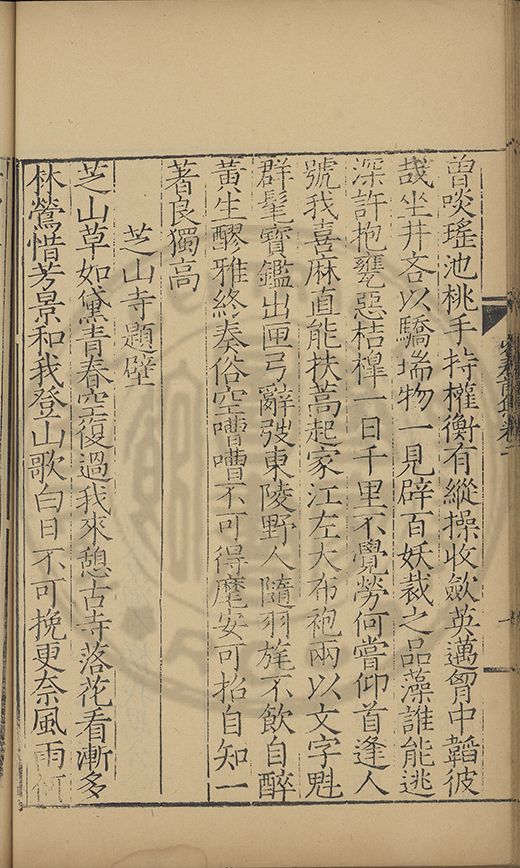 曾啖瑤池桃手持權衡有縱操收歛英邁胷中韜彼
哉坐井吝以驕瑞物一見辟百妖裁之品藻誰能逃
深許抱甕惡桔橰一日千里不覺勞何嘗仰首逢人
號我喜麻直能扶蒿起家江左大布袍兩以文字魁
群髦寶鑑出匣弓辭弢東陵野人隨羽旄不飲自醉
黃生醪雅終奏俗空嘈嘈不可得麾安可招自知一
著良獨高
芝山寺題壁
芝山草如黛青春空復過我來憩古寺落花看漸多
林鶯惜芳景和我登山歌白日不可挽更奈風雨何